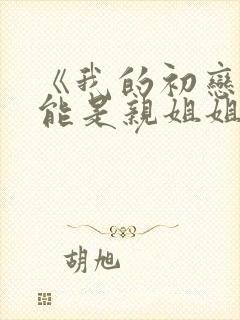 《我的初戀
能是親姐姐
胡旭